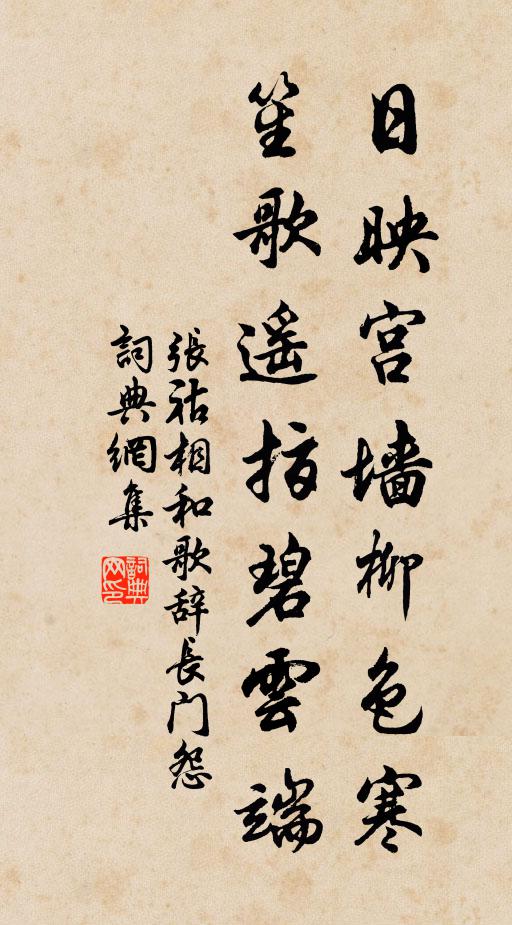 日映宫墙柳色寒
笙歌遥指碧雲端
張祜相和歌辞長门怨
詞典網集
詞典网印